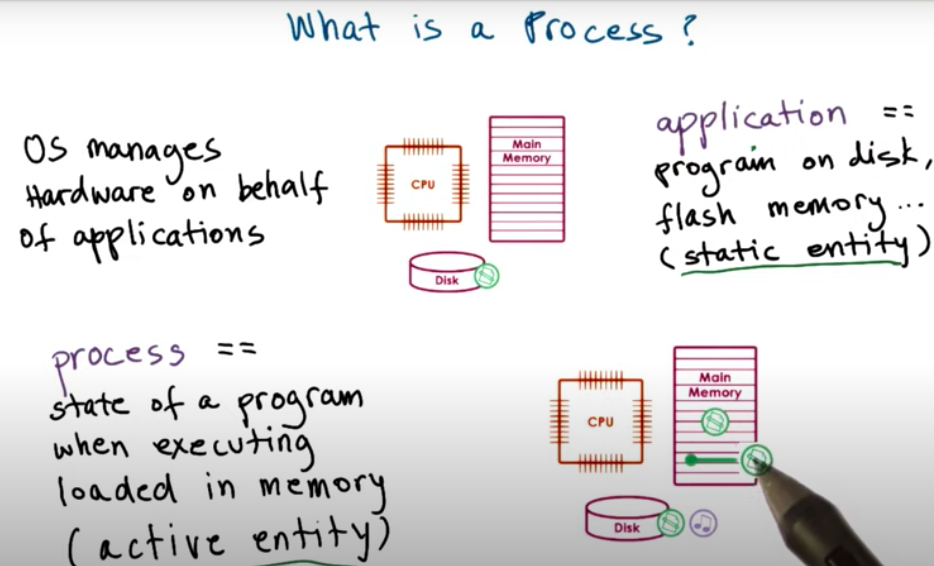 What is a Process?
OS manages
Hardware on behalf
of applications
CPU
Main
Memory
Disk
application ==
program on disk,
flash memory...
(static entity)
process ==
state of a program
when executing
loaded in memory
(active entity)
CPU
Main
Memory
Disk